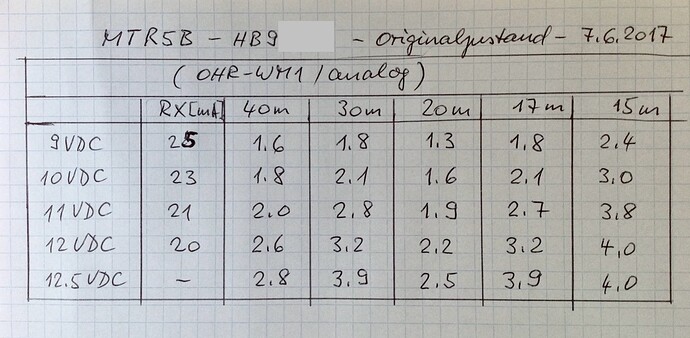 MTR5B - HB9 - Originalzustand - 7.6.2017
(OHR-WM1/analog)
RX[mA] 40m 30m 20m 17m 15m
9VDC 25 1.6 1.8 1.3 1.8 2.4
10VDC 23 1.8 2.1 1.6 2.1 3.0
11VDC 21 2.0 2.8 1.9 2.7 3.8
12VDC 20 2.6 3.2 2.2 3.2 4,0
12.5VDC - 2.8 3.9 2.5 3.9 4.0